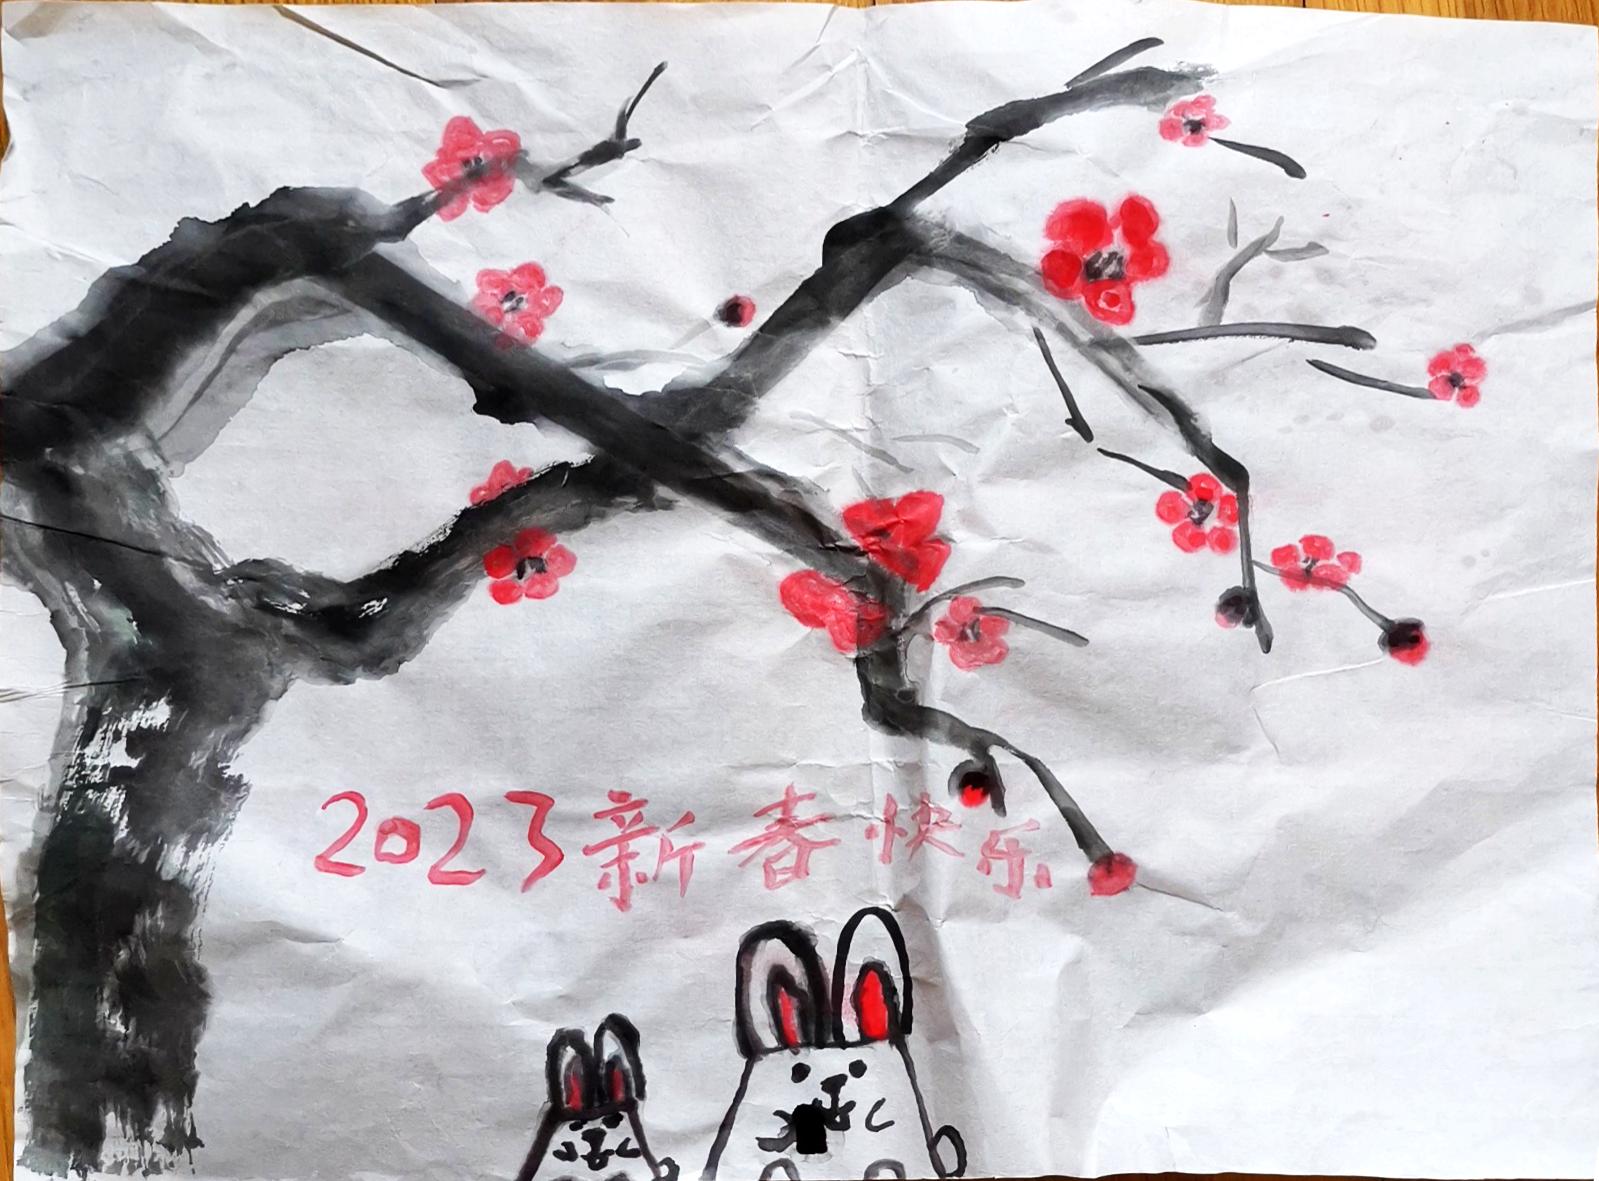 2023新春快乐